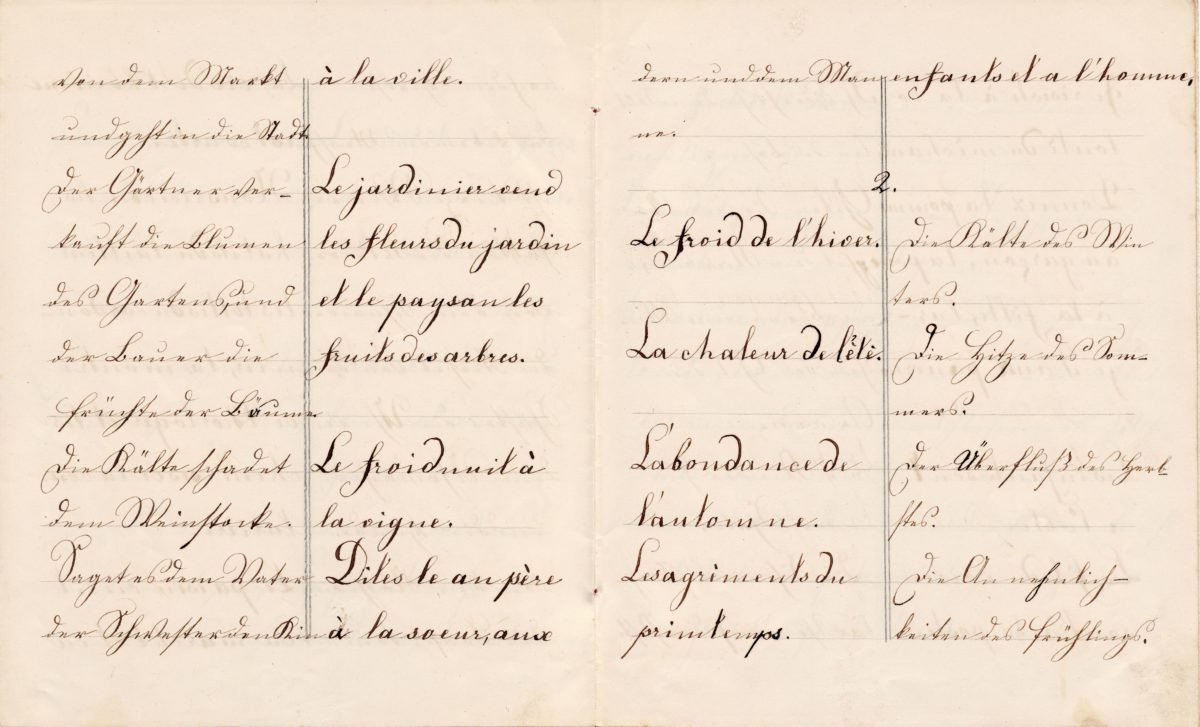 von dem Markt à la ville.
und geht in die Stadt.
Der Gärtner ver- Le jardinier vend
kauft die Blumen les fleurs du jardin
des Gartens, und et le paysan les
der Bauer die fruits des arbres.
Früchte der Bäume
Die Kälte schadet Le froid nuit à
dem Weinstocke. la vigne.
Saget es dem Vater Dites le au père
der Schwester den Kin à la soeur, aux
dern und dem Man enfants et a l'homme,
ne.
2.
Le froid de l'hiver. Die Kälte des Win
ters.
La chaleur de l'été. Die Hitze des Som-
mers.
L'abondance de Der Überfluß des Herb-
l'automne. stes.
Les agriments du Die Annehmlich-
printemps. keiten des Frühlings.